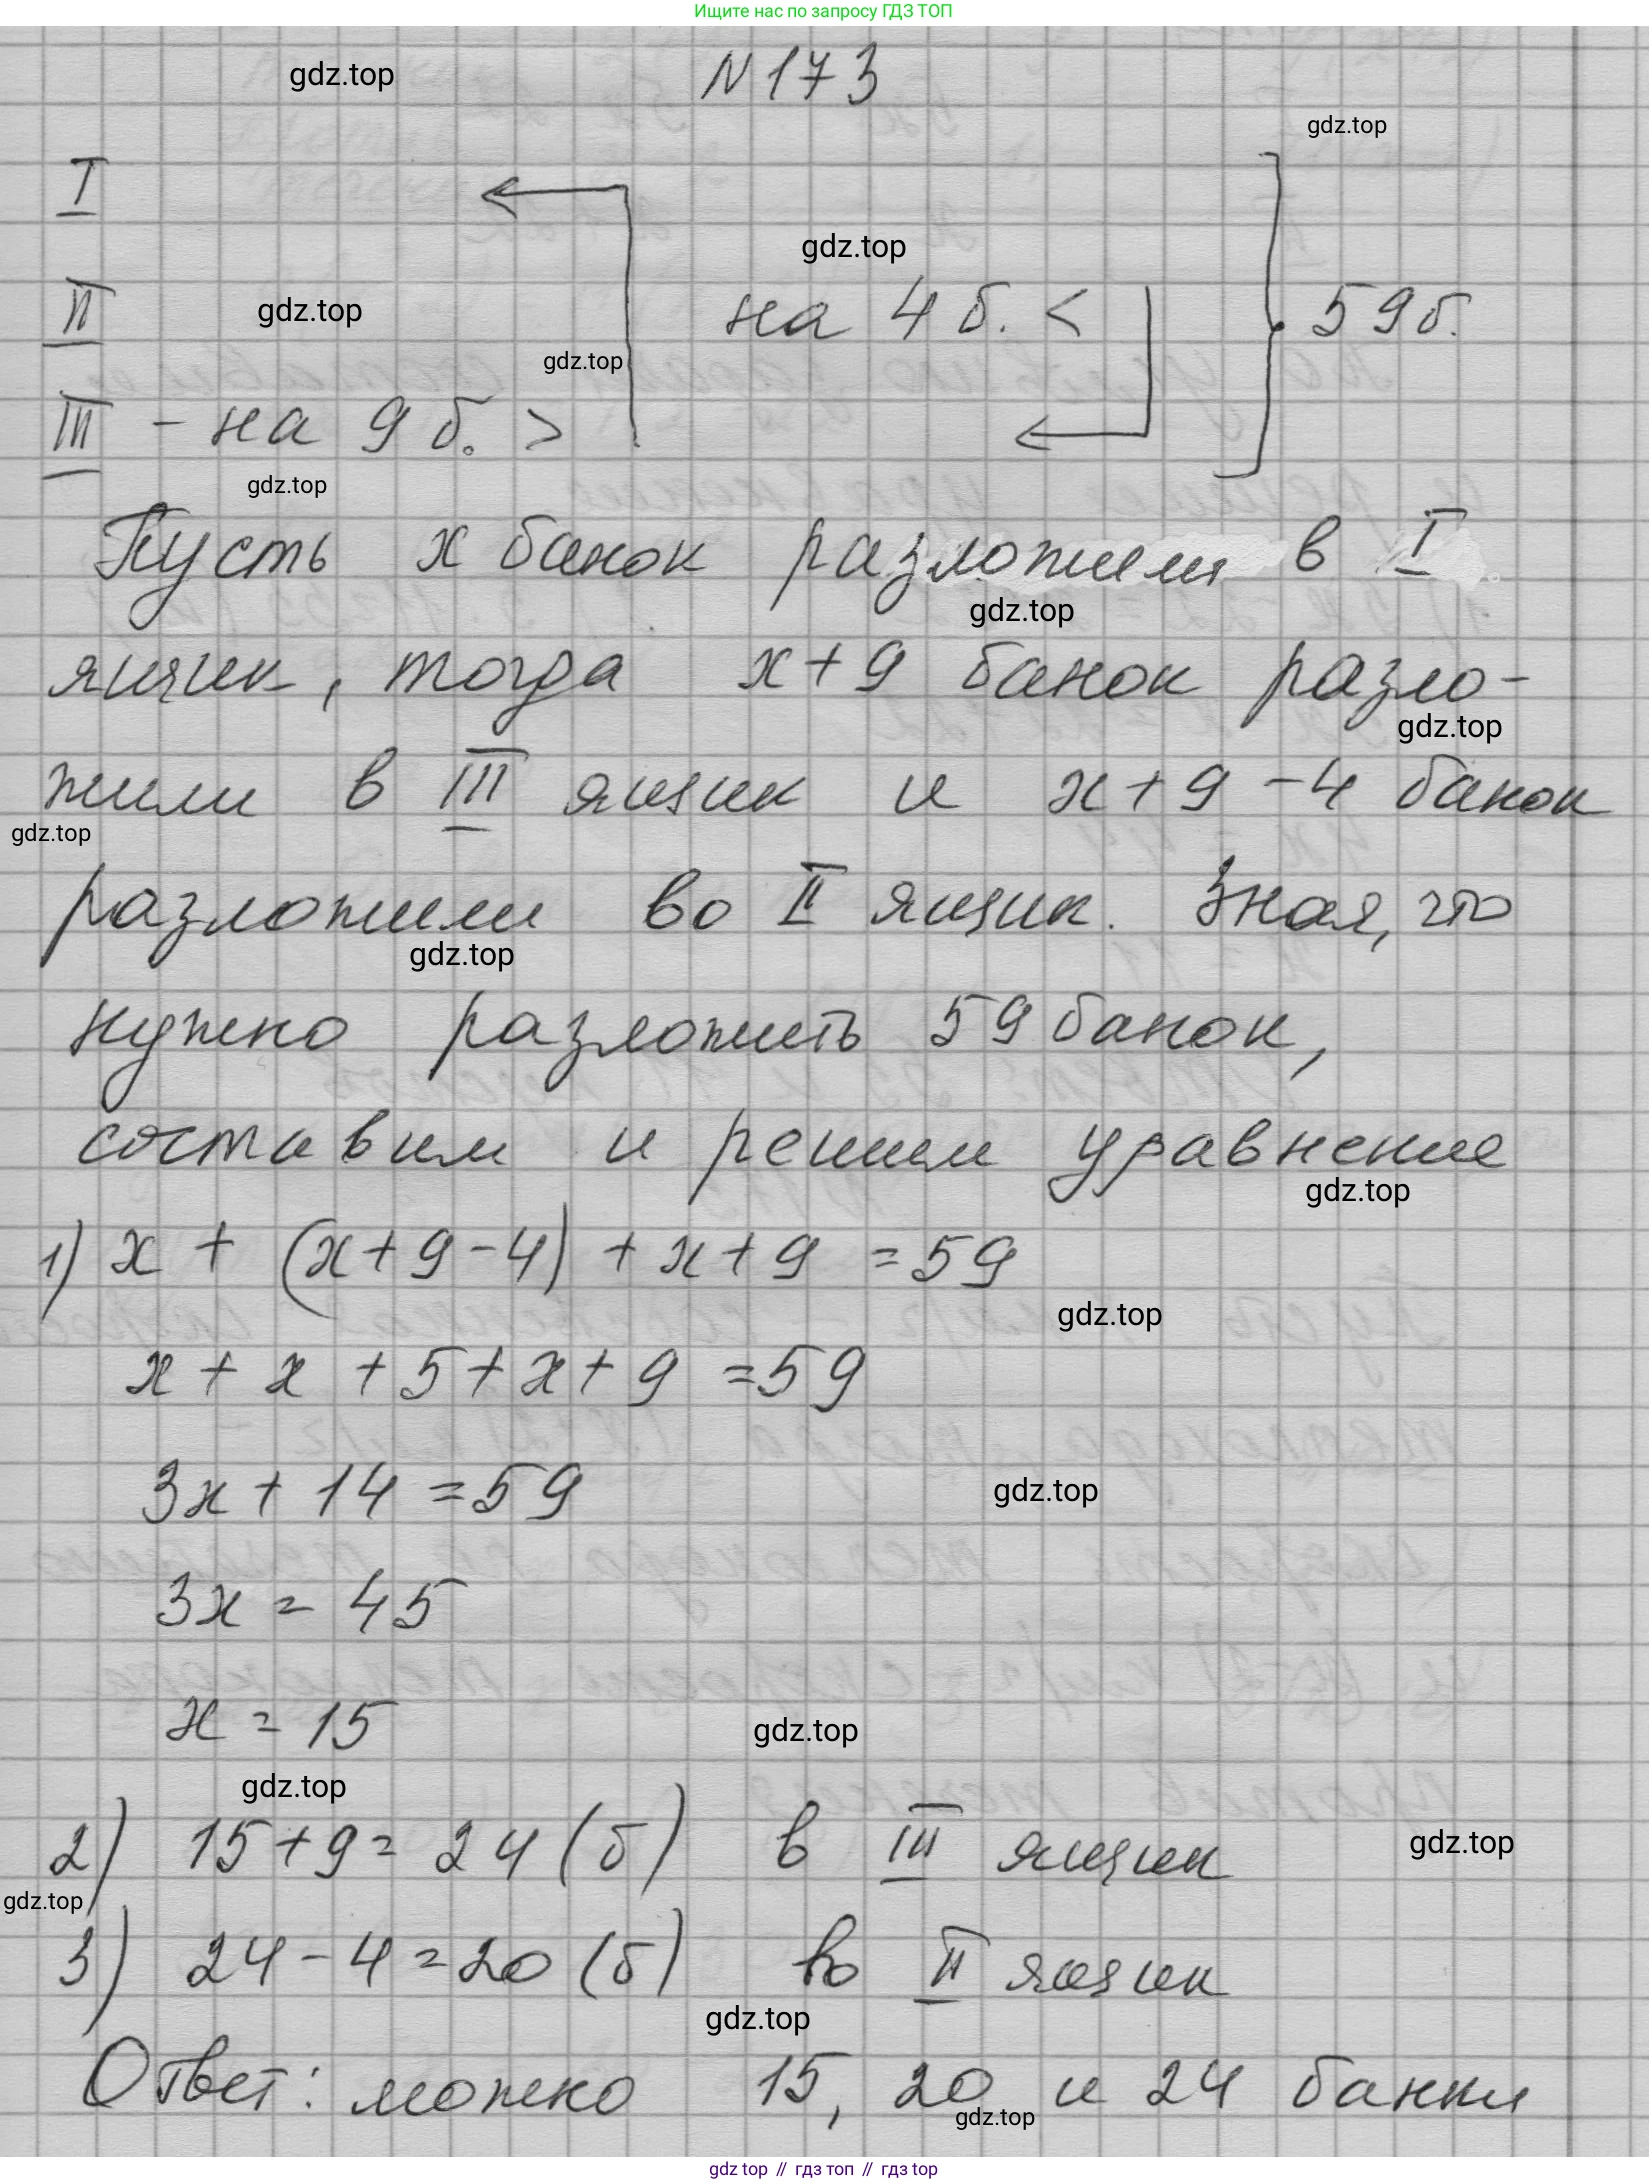 Ищите нас по запросу ГДЗ ТОП
gdz.top
N 173
gdz.top
I
gdz.top
II gdz.top на 4 б. < 59 б.
gdz.top
III - на 9 б. >
gdz.top
Пусть x банок разложили в I
gdz.top
ящик, тогда x+9 банок разло-
gdz.top
жили в III ящик и x+9-4 банок
gdz.top
разложили во II ящик. Зная, что
gdz.top
нужно разложить 59 банок,
составим и решим уравнение
gdz.top
1) x + (x+9-4) + x+9 = 59
gdz.top
x + x + 5 + x + 9 = 59
3x + 14 = 59
gdz.top
3x = 45
x = 15
gdz.top
gdz.top
2) 15+9= 24 (б) в III ящик
gdz.top
gdz.top
3) 24-4=20 (б) во II ящик
gdz.top
Ответ: можно 15, 20 и 24 банки
gdz.top
gdz top // гдз топ // гдз top